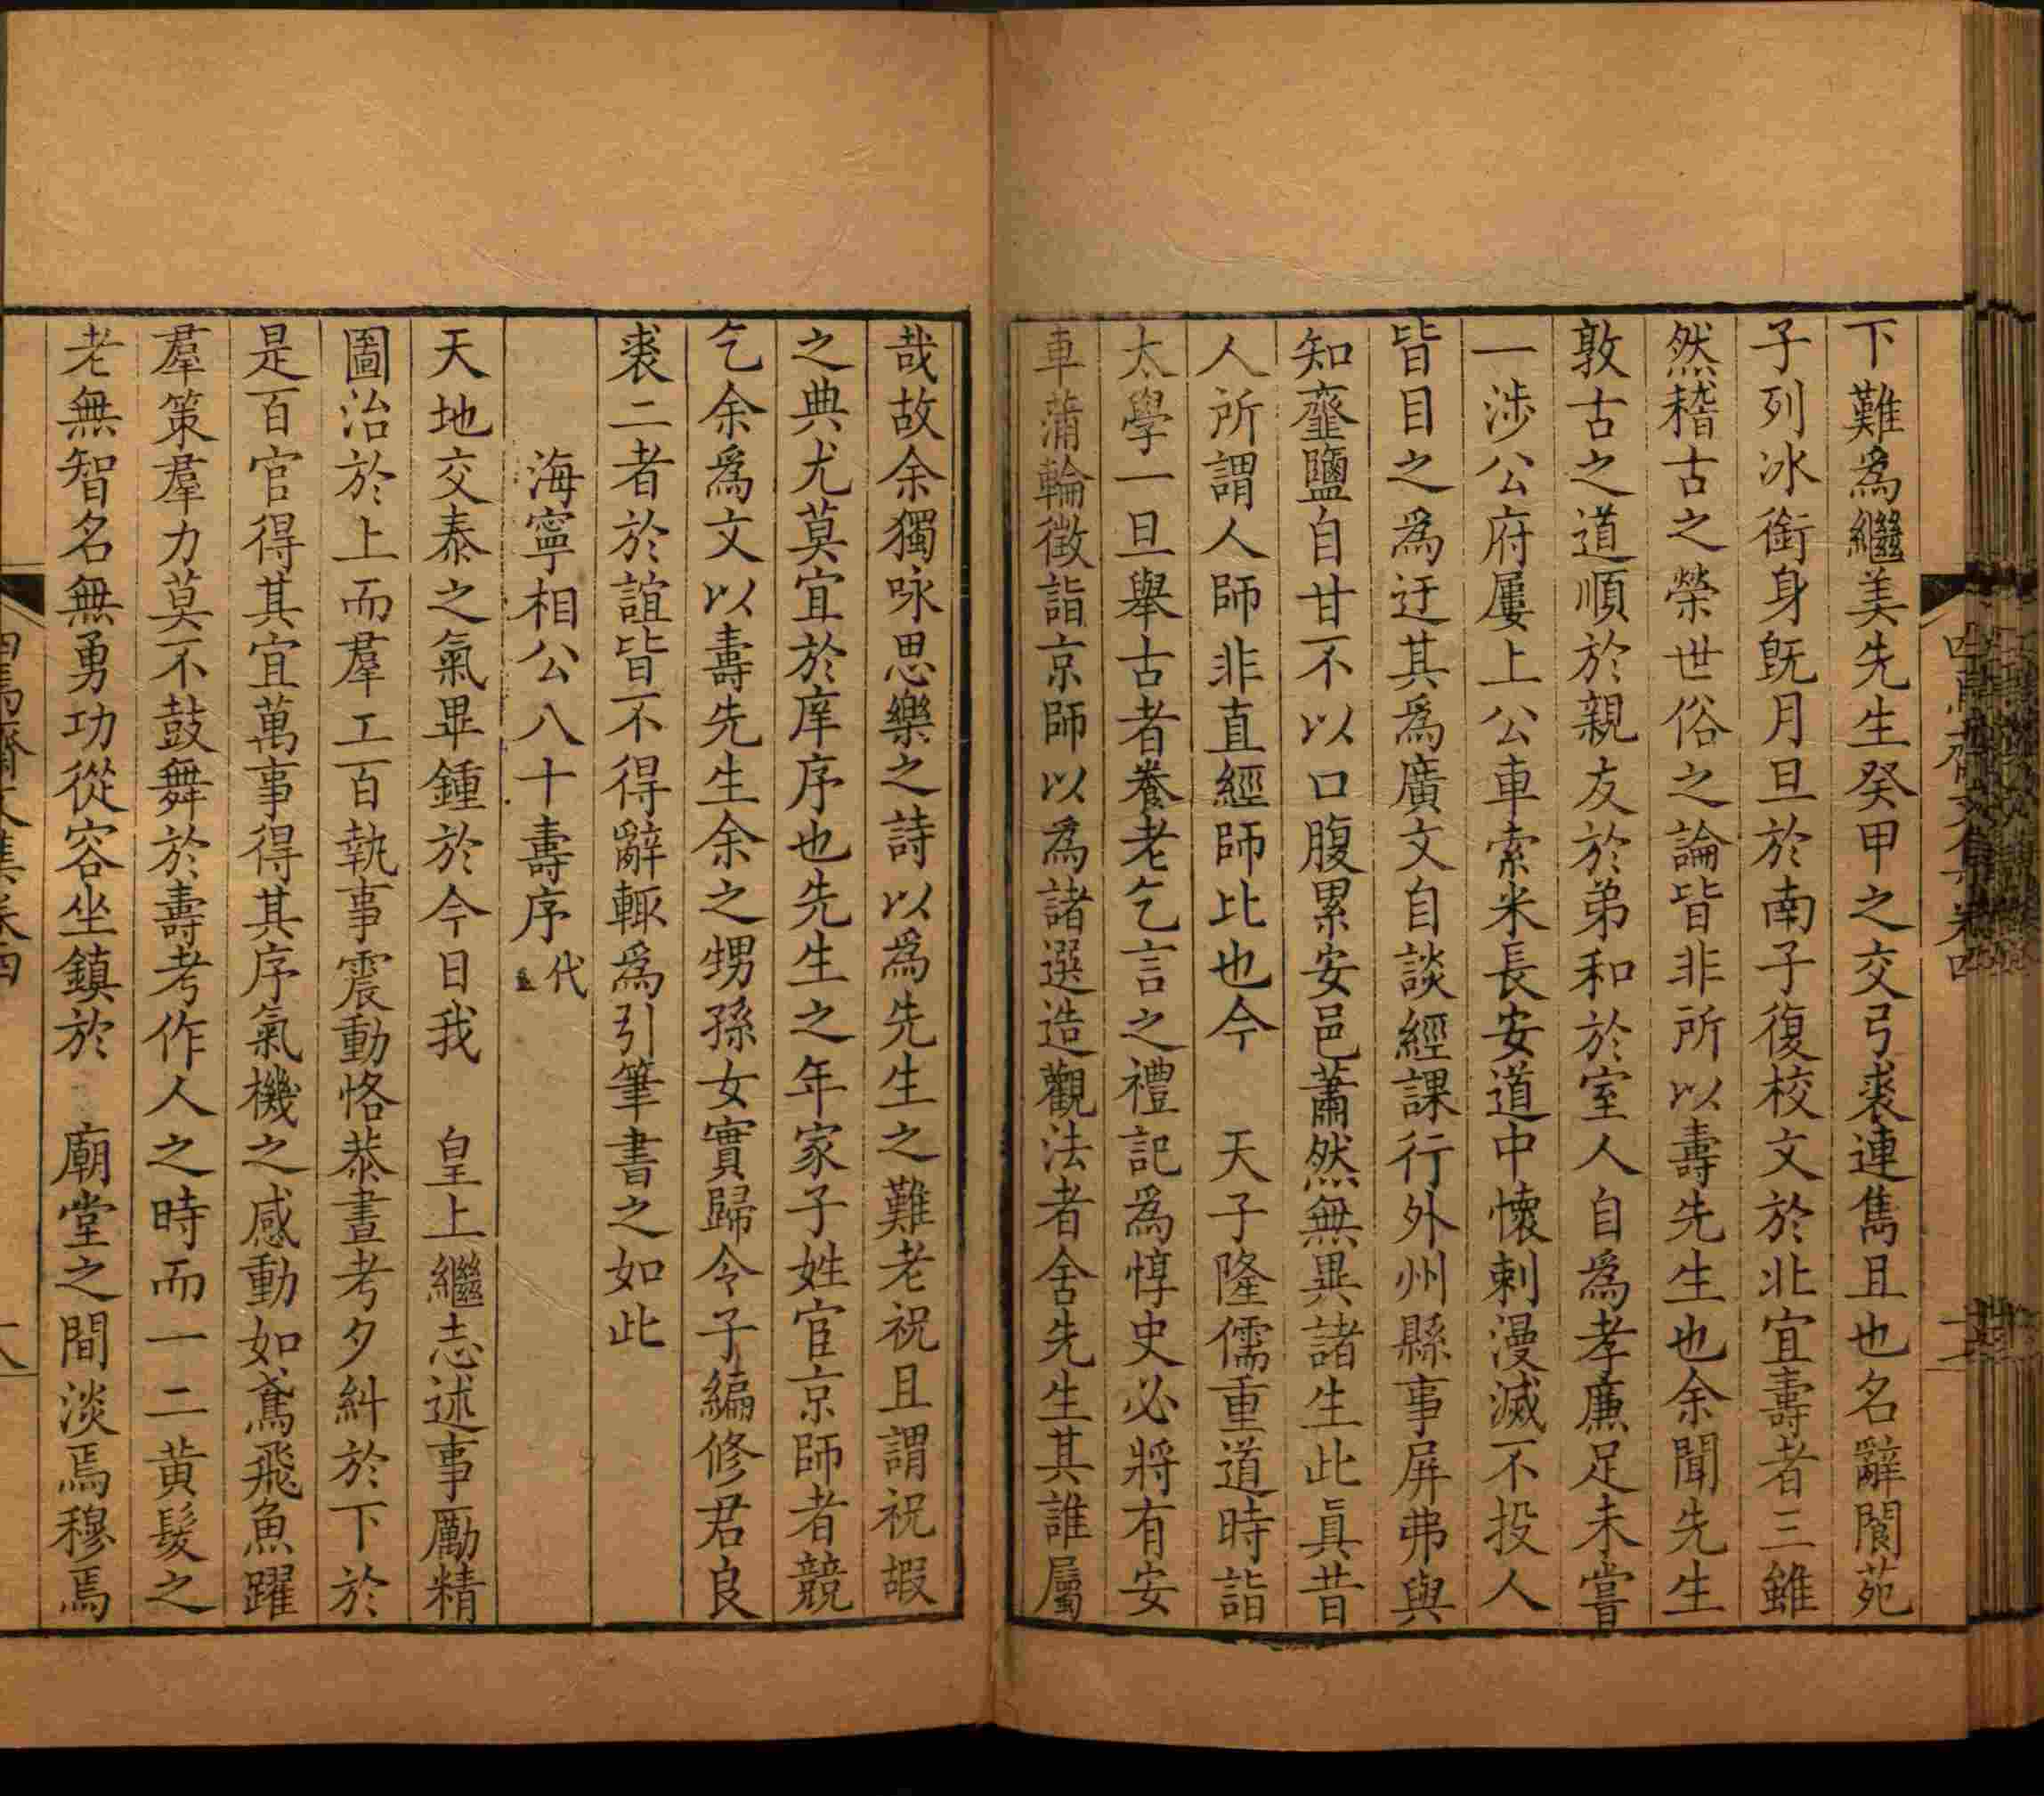 下難爲繼美先生癸甲之交弓裘連雋且也名辭閬苑
子列冰銜身旣月旦於南子復校文於北宜壽者三雖
然稽古之榮世俗之論皆非所以壽先生也余聞先生
敦古之道順於親友於弟和於室人自爲孝廉足未嘗
一涉公府屢上公車索米長安道中懷刺漫滅不投人
皆目之爲迂其爲廣文自談經課行外州縣事屏弗與
知虀鹽自甘不以口腹累安邑蕭然無異諸生此眞昔
人所謂人師非直經師比也今　天子隆儒重道時詣
太學一旦舉古者養老乞言之禮記爲惇史必將有安
車蒲輪徵詣京師以爲諸選造觀法者舍先生其誰屬
哉故余獨咏思樂之詩以爲先生之難老祝且謂祝嘏
之典尤莫宜於庠序也先生之年家子姓宦京師者競
乞余爲文以壽先生余之甥孫女實歸令子編修君良
裘二者於誼皆不得辭輒爲引筆書之如此
海寧相公八十壽序代
天地交泰之氣畢鍾於今日我　皇上繼志述事勵精
圖治於上而羣工百執事震動恪恭晝考夕糾於下於
是百官得其宜萬事得其序氣機之感動如鳶飛魚躍
羣策羣力莫不鼓舞於壽考作人之時而一二黃髮之
老無智名無勇功從容坐鎮於　廟堂之間淡焉穆焉